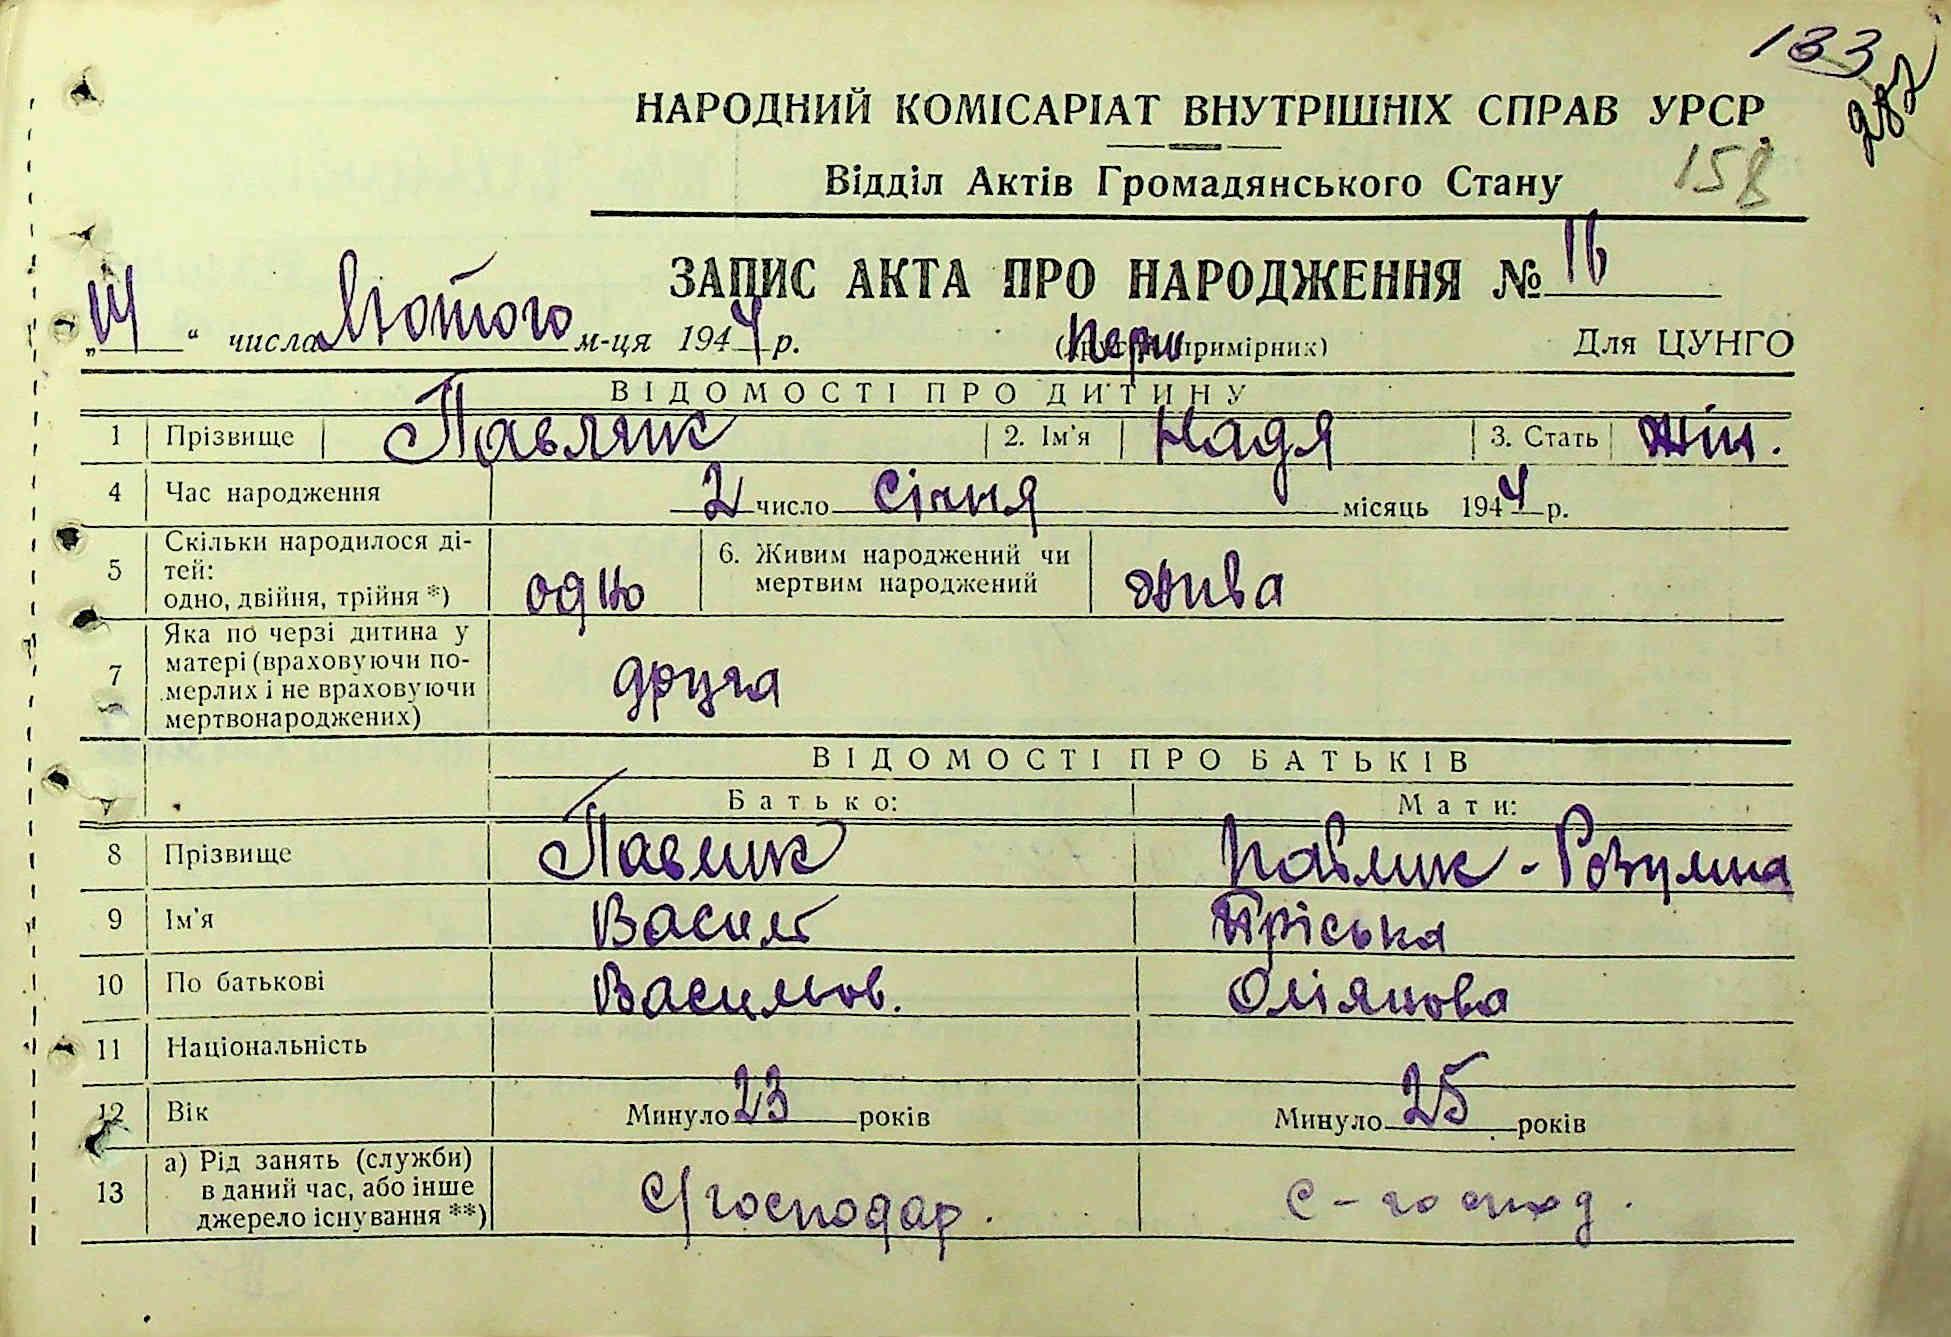 133
282
НАРОДНИЙ КОМІСАРІАТ ВНУТРІШНІХ СПРАВ УРСР
Відділ Актів Громадянського Стану
158
ЗАПИС АКТА ПРО НАРОДЖЕННЯ № 16
„14“ числа Лютого м-ця 1944 р. Перш. примірник) Для ЦУНГО
ВІДОМОСТІ ПРО ДИТИНУ
1 Прізвище Павлик 2. Ім'я Надя 3. Стать жін.
4 Час народження 2 число Січня місяць 1944 р.
5 Скільки народилося ді-
тей:
одно, двійня, трійня *) одно 6. Живим народжений чи
мертвим народжений жива
7 Яка по черзі дитина у
матері (враховуючи по-
мерлих і не враховуючи
мертвонароджених) друга
ВІДОМОСТІ ПРО БАТЬКІВ
Батько: Мати:
8 Прізвище Павлик Павлик - Розумна
9 Ім'я Василь Пріська
10 По батькові Васильов. Оліянова
11 Національність
12 Вік Минуло 23 років Минуло 25 років
13 а) Рід занять (служби)
в даний час, або інше
джерело існування **) с/господар. с-господ.